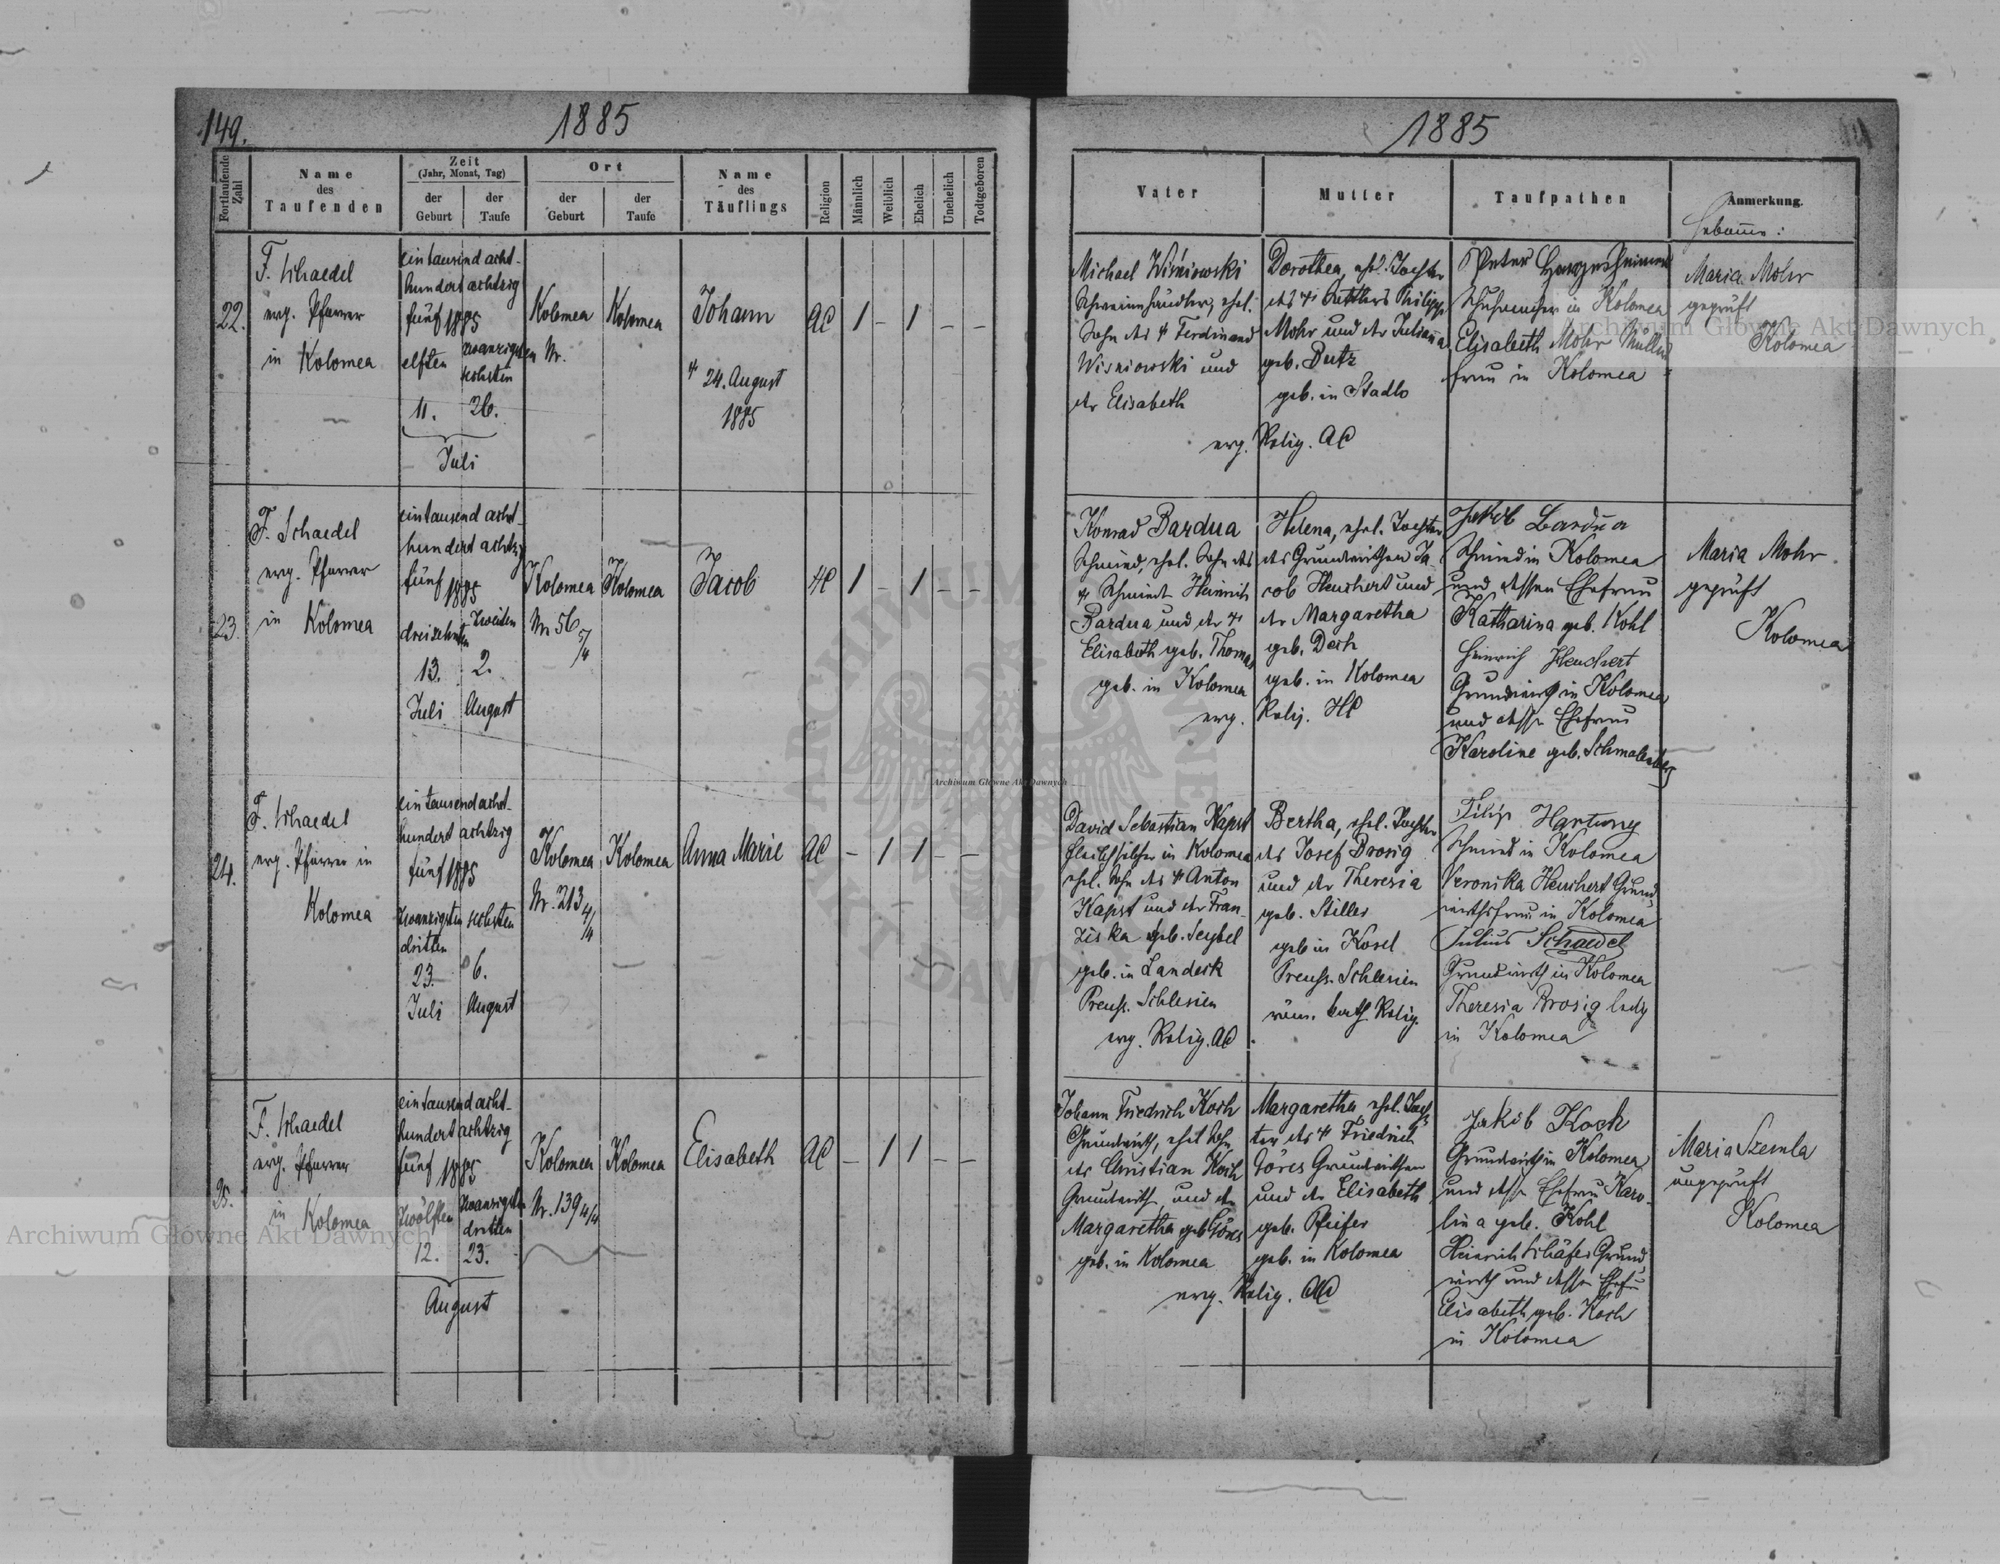 149.
1885
Fortlaufende Zahl
Name
des
Taufenden
Zeit
(Jahr, Monat, Tag)
der Geburt
der Taufe
Ort
der Geburt
der Taufe
Name
des
Täuflings
Religion
Männlich
Weiblich
Ehelich
Unehelich
Todtgeboren
22.
F. Schaedel
evg. Pfarrer
in Kolomea
eintausend acht-
hundert achtzig
fünf 1885
elften
zwanzigsten
sechsten
11. 26.
Juli
Kolomea
Nr.
Kolomea
Johann
24. August
1885
AC
1 - 1 - -
23.
F. Schaedel
evg. Pfarrer
in Kolomea
eintausend acht-
hundert achtzig
fünf 1885
dreizehnten
zweiten
13. 2.
Juli August
Kolomea
Nr 56 5/4
Kolomea
Jacob
HC
1 - 1 - -
24.
F. Schaedel
evg. Pfarrer in
Kolomea
eintausend acht-
hundert achtzig
fünf 1885
zwanzigsten sechsten
dritten
23. 6.
Juli August
Kolomea
Nr. 213 4/4
Kolomea
Anna Marie
AC
- 1 1 - -
25.
F. Schaedel
evg. Pfarrer
in Kolomea
eintausend acht-
hundert achtzig
fünf 1885
zwölften
zwanzigsten
dritten
12. 23.
August
Kolomea
Nr. 139 4/4
Kolomea
Elisabeth
AC
- 1 1 - -
1885
Vater
Mutter
Taufpathen
Anmerkung.
Hebamme:
Michael Wiśniowski
Schweinhändler, ehel.
Sohn des † Ferdinand
Wisniowski und
der Elisabeth
Dorothea, ehel. Tochter
des † Sattlers Philipp
Mohr und der Juliana
geb. Butz
geb. in Stadlo
evg. Relig. AC
Peter
Schuhmacher in Kolomea
Elisabeth Mohr Müllers
frau in Kolomea
Maria Mohr
geprüft
Kolomea
Konrad Bardua
Schmied, ehel. Sohn des
† Schmied Heinrich
Bardua und der †
Elisabeth geb. Thomas
geb. in Kolomea
Helena, ehel. Tochter
des Grundwirthen Ja-
cob Heuchert und
der Margaretha
geb. Dech
geb. in Kolomea
evg. Relig. HC
Jakob Bardua
Schmied in Kolomea
und dessen Ehefrau
Katharina geb. Kohl
Heinrich Heuchert
Grundwirth in Kolomea
und dessen Ehefrau
Karoline geb.
Maria Mohr
geprüft
Kolomea
David Sebastian Kapst
in Kolomea
ehel. Sohn des † Anton
Kapst und der Fran-
ziska geb. Seybel
geb. in Landeck
Preuss. Schlesien
evg. Relig. AC
Bertha, ehel. Tochter
des Josef Brosig
und der Theresia
geb. Stiller
geb in Kosel
Preuss. Schlesien
röm. kath Relig.
Filip Hartung
Schmied in Kolomea
Veronika Heuchert Grund-
wirthsfrau in Kolomea
Julius Schaedel
Grundwirth in Kolomea
Theresia Brosig ledg
in Kolomea
Johann Friedrich Koch
Grundwirth, ehel Sohn
des Christian Koch
Grundwirth und der
Margaretha geb Göres
geb. in Kolomea
Margaretha, ehel. Toch-
ter des † Friedrich
Göres Grundwirthen
und der Elisabeth
geb. Pfeifer
geb. in Kolomea
evg. Relig. AC
Jakob Koch
Grundwirth in Kolomea
und dessen Ehefrau Karo-
lina geb. Kohl
Heinrich Schäfer Grund-
wirth und dessen Ehefrau
Elisabeth geb. Koch
in Kolomea
Maria Szemla
ungeprüft
Kolomea
Archiwum Główne Akt Dawnych
Archiwum Główne Akt Dawnych
Archiwum Główne Akt Dawnych
ARCHIWUM GŁÓWNE
AKT DAWNYCH